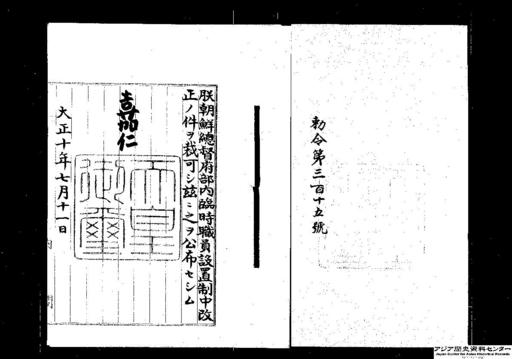 勅令第三百十五號
朕朝鮮總督府部內臨時職員設置制中改
正ノ件ヲ裁可シ茲ニ之ヲ公布セシム
嘉仁
天皇
御璽
大正十年七月十一日
アジア歴史資料センター
Japan Center for Asian Historical Records